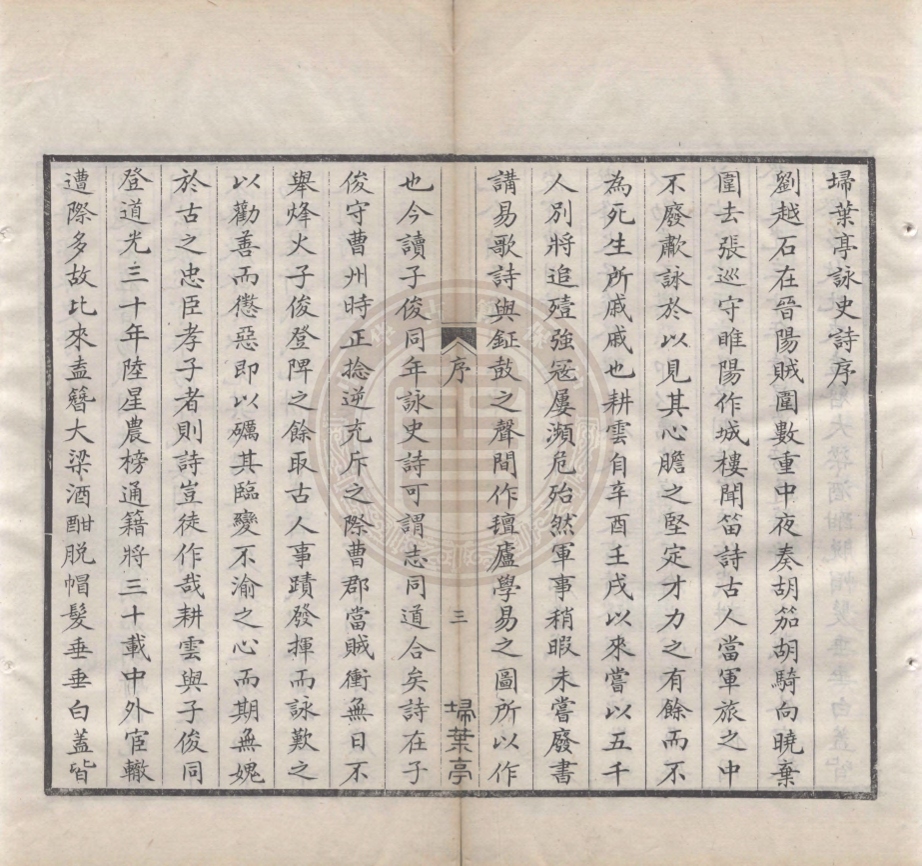 埽葉亭詠史詩序
劉越石在晉陽賊圍數重中夜奏胡笳胡騎向曉棄
圍去張巡守睢陽作城樓聞笛詩古人當軍旅之中
不廢歗詠於以見其心膽之堅定才力之有餘而不
為死生所戚戚也耕雲自辛酉壬戌以來嘗以五千
人別將追殪強寇屢瀕危殆然軍事稍暇未嘗廢書
講易歌詩與鉦鼓之聲間作氊廬學易之圖所以作
序
三
埽葉亭
也今讀子俊同年詠史詩可謂志同道合矣詩在子
俊守曹州時正捻逆充斥之際曹郡當賊衝無日不
舉烽火子俊登陴之餘取古人事蹟發揮而詠歎之
以勸善而懲惡即以礪其臨變不渝之心而期無媿
於古之忠臣孝子者則詩豈徒作哉耕雲與子俊同
登道光三十年陸星農榜通籍將三十載中外宦轍
遭際多故比來盍簪大梁酒酣脱帽髮垂垂白蓋皆